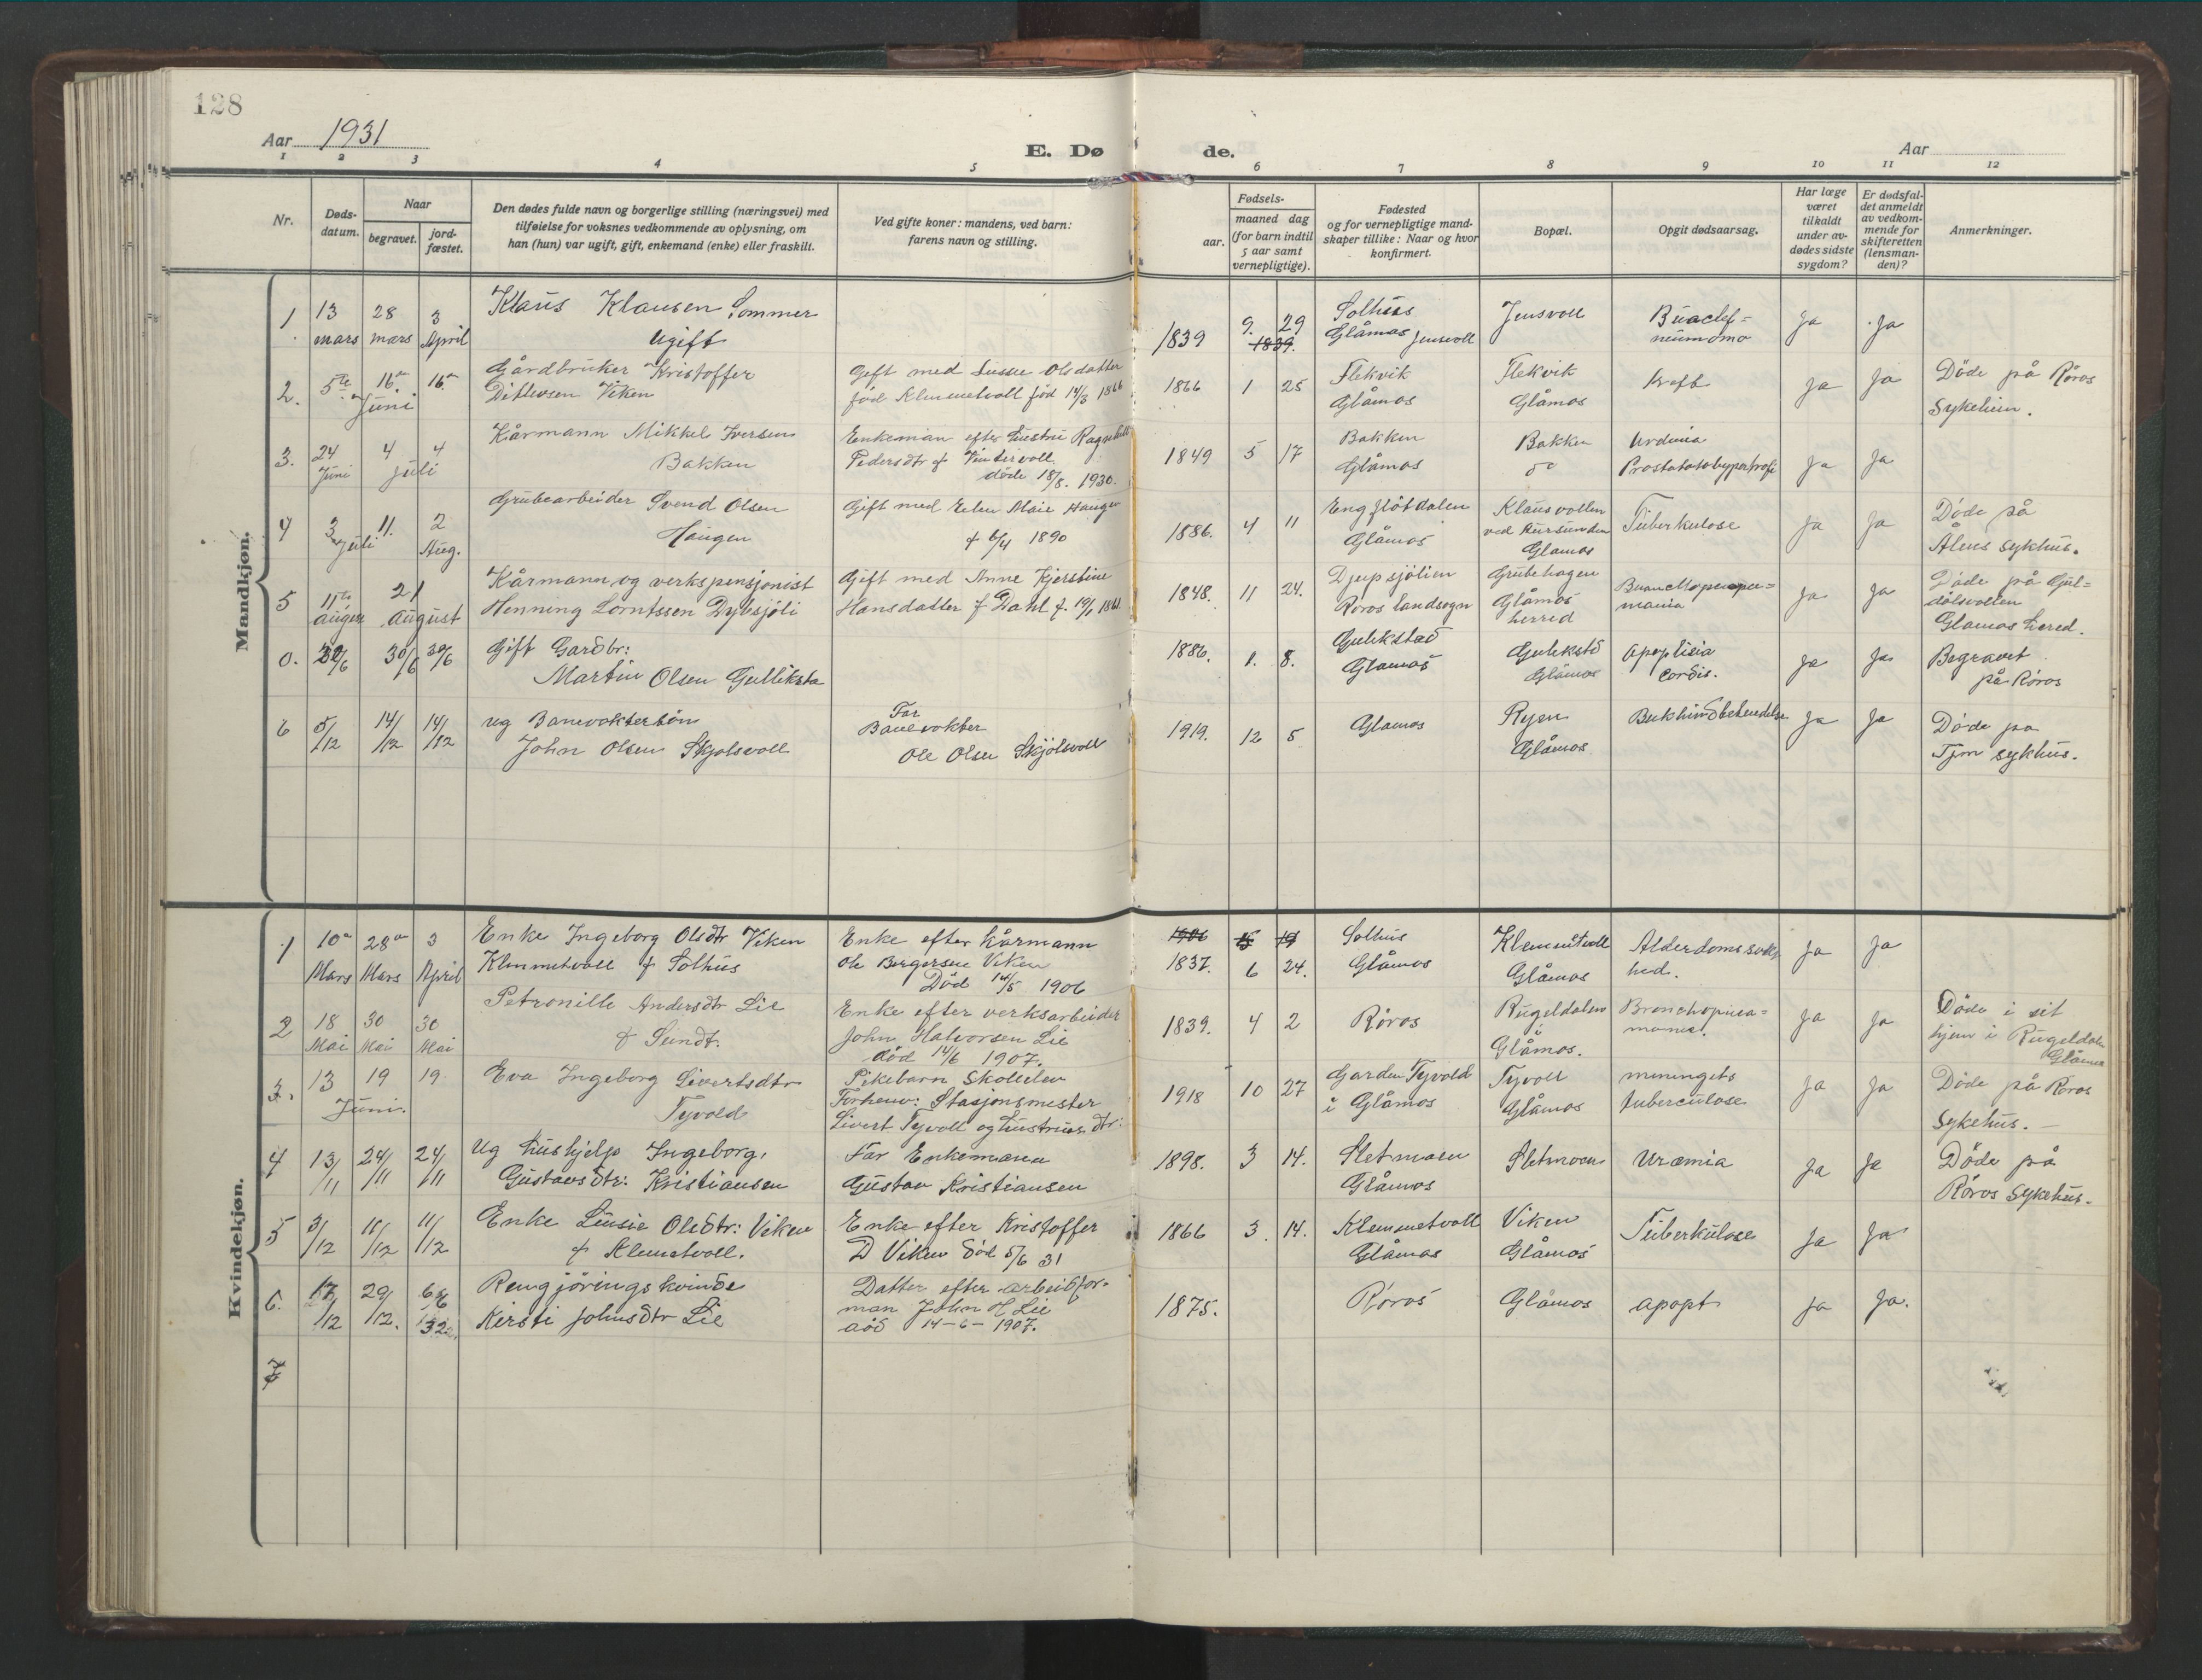 128
Aar 1931
E. Dø de.
Aar
1 2 3 4 5 6 7 8 9 10 11 12
Nr.
Døds-
datum.
Naar
begravet.
jord-
fæstet.
Den dødes fulde navn og borgerlige stilling (næringsvei) med
tilføielse for voksnes vedkommende av oplysning, om
han (hun) var ugift, gift, enkemand (enke) eller fraskilt.
Ved gifte koner: mandens, ved barn:
farens navn og stilling.
aar.
Fødsels-
maaned dag
(for barn indtil
5 aar samt
vernepligtige).
Fødested
og for vernepligtige mand-
skaper tillike: Naar og hvor
konfirmert.
Bopæl.
Opgit dødsaarsag.
Har læge
været
tilkaldt
under av-
dødes sidste
sygdom?
Er dødsfal-
det anmeldt
av vedkom-
mende for
skifteretten
(lensman-
den)?
Anmerkninger.
Mandkjøn.
1 13 28 3 Klaus Klausen Sommer 1839 9. 29 Solhus Jensvoll Ja Ja
mars mars April Ugift 1839. Glåmos Jensvoll
2. 5te 16 16 Gårdbruker Kristoffer Gift med Lussie Olsdatter 1866 1 25 Flekvik Flekvik Kreft Ja Ja Døde på Røros
Juni Ditlevsen Viken fød Klemmetvoll fød 14/3 1866 Glåmos Glåmos Sykehus.
3. 24 4 4 Kårmann Mikkel Iversen Enkeman efter hustru Ragnhild 1849 5 17 Bakken Bakken Ja Ja
Juni Juli Bakken Pedersdtr f Vintervoll Glåmos do Prostatahypertrofi
døde 18/8. 1930.
4 3 11. 2 Grubearbeider Svend Olsen Gift med Elen Marie Haugen 1886. 4 11 Engflötdalen Klausvollen Tuberkulose Ja Ja Døde på
Juli Aug. Haugen f 6/4 1890 Glåmos ved Aursunden Ålens sykhus.
Glåmos
5 11te 21 Kårmann og verkspensjonist Gift med Anne Kjerstine 1848. 11 24. Djupsjölien Grubehagen Ja Ja Døde på Gul-
August Henning Lorntssen Dybsjöli Hansdatter f Dahl f. 19/1 1861 Røros landsogn Glåmos dølsvollen
herred Glåmos hered.
0. 20/6 30/6 30/6 Gift Gardbr: 1886. 1. 8. Gullikstad Gulekstd Apoplexia Ja Ja Begravet
Martin Olsen Gulliksta Glamos Glåmos cordis. på Røros
6 5/12 14/12 14/12 ug Banevoktersön Far 1919. 12 5 Glamos Ryen Bukhindebetendelse Ja Ja Døde pa
John Olsen Skjolsvoll Banevokter Glåmos Tjm sykhus.
Ole Olsen Skjölsvoll
Kvindekjøn.
1 10 28 3 Enke Ingeborg Olsdtr Viken Enke efter Kårmann 1906 15 14 Solhus Klemmetvoll Alderdomssvak Ja Ja
Mars Mars April Klemmetvoll f Solhus Ole Bergersen Viken 1837. 6 24. Glåmos Glåmos hed.
Død 14/5 1906
2 18 30 30 Petronille Andersdtr Lie Enke efter verksarbeider 1839. 4 2 Røros Rugeldalen Bronchopneu- Ja Ja Døde i sit
Mai Mai Mai f Sundt. John Halvorsen Lie i hjem i Rugeldalen
død 14/6 1907. Glåmos. Glåmos
3. 13 19 19 Eva Ingeborg Sivertsdtr Pikebarn Skoleelev 1918 10 27 Garden Tyvold Tyvoll meningets Ja Ja Døde på Røros
Juni. Tyvold Forhenv: Stasjonsmester i Glåmos Glåmos tuberculose Sykehus. –
Sivert Tyvoll og hustrus dtr:
4 13/11 24/11 24/11 Ug hushjelp Ingeborg, Far Enkemann 1898. 3 14. Sletmoen Sletmoen Uræmia Ja Ja Døde på
Gustavsdtr: Kristiansen Gustav Kristiansen Glåmos Røros sykehus.
5 3/12 11/12 11/12 Enke Lussie Olsdtr: Viken Enke efter Kristoffer 1866 3. 14. Klemmetvoll Viken Tuberkulose Ja Ja
f Klemetvoll. D Viken död 5/6 31 Glåmos Glåmos
6. 17/12 29/12. Rengjöringskvinde Datter efter arbeidfor- 1875. Røros Glåmos apopt Ja Ja.
32 Kirsti Johnsdtr Lie man John H Lie
död 14-6-1907.
7